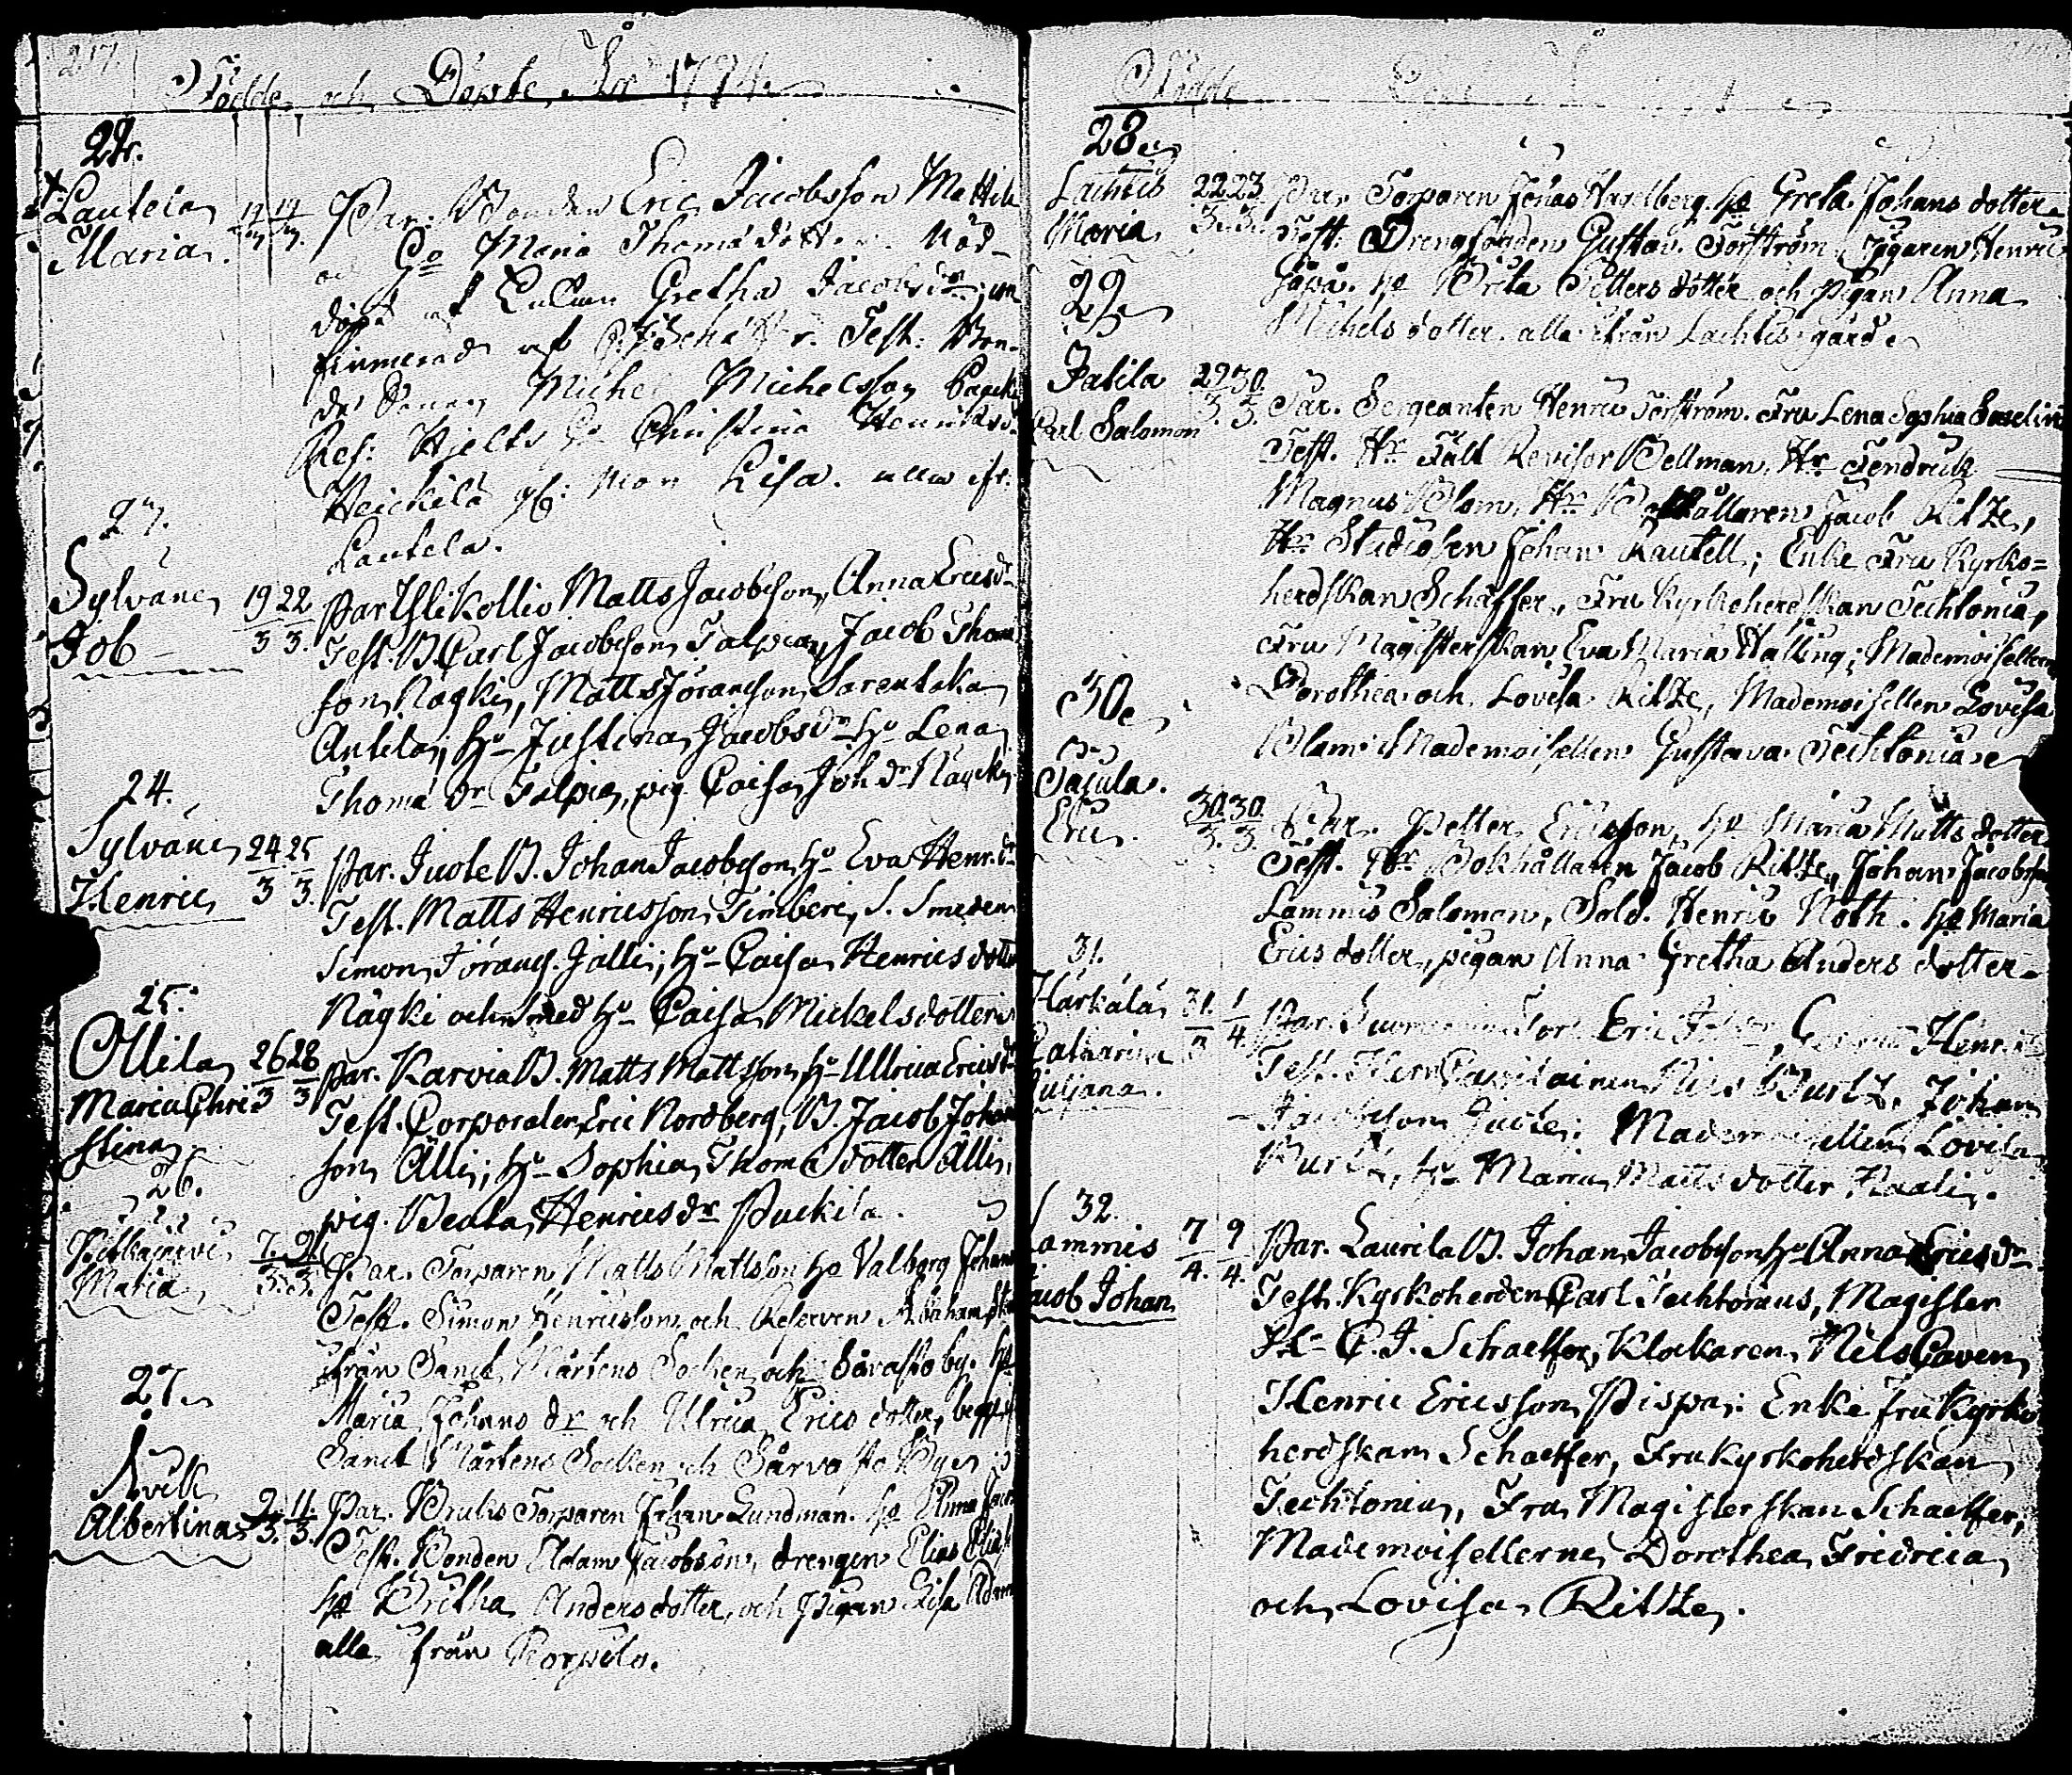 217.
Födde och Döpte År 1794.
22.
Lautela
Maria.
19 19
Par: Bonden Eric Jacobsson Mattila
och Ho Maria Thomædott. Nöd-
döpt af Gretha Jacobsdr; con
firmerad af Test: Bon-
de Sonen Michel Michelsson
Res: Hielt, Ho Christina Henriksd.
Heickilä Lisa. alla ifr:
Lautela.
27.
Sylvänä
Job
19 22
3 3.
Par. Isli Kollio Matts Jacobsson, Anna Ericsdr
Test. B. Carl Jacobsson Talpia, Jacob Thom
son Nägki, Matts Göransson Sarentaka
Antila; Hu Justina Jacobsdr Hu Lena
Thomæ dr Talpia, pig. Caisa Joh. dr Nägki
24.
Sylvänä
Henric
24 25
3 3.
Par. Juole B. Johan Jacobsson, Hu Eva Henr. dr
Test. Matts Henricsson Timberi, S. Smeden
Simon Görans. Jälli; Hu Caisa Henricsdotter
Nägki och med Hu Caisa Mickelsdotter
25.
Ollila
Maria Chri
stina
26 28
3 3
Par. Karvia B. Matts Mattsson, Hu Ulrica Ericsdr
Test. Corporalen Eric Nordberg, B. Jacob Johan
son Älli; Hu Sophia Thomæ dotter Älli,
pig. Beata Henricsdr Puckila.
26.
Pitkäjärvi
Maria
7. 9.
3. 3.
Par. Torparen Matts Mattsson ho Valborg Johan
Test. Simon Henricsson och Reserven Abraham
ifrån Sanct Mårtens Socken och Särvasto by. ho
Maria Johans dr och Ulrica Erics dotter, begge if
Sanct Mårtens Socken och Särvasto By
27.
Albertina
9. 11.
3. 3.
Par. Bruks Torparen Johan Lundman. ho Anna Jaco
Test. Bonden Adam Jacobsson, drengen Elias Elias
ho Britha Anders dotter, och Pigan Lisa Adam
alla från Korpilo.
Födde
28.
Lachtis
Maria
22 23
3. 3.
Par. Torparen Jonas Haslberg. ho Greta Johans dotter.
Test. Drengsonden Gustav Torström, Henric
ho Brita Petters dotter och Pigan Anna
Michels dotter. alla ifrån Lachtis gård
29.
Jatila
Carl Salomon
29 30.
3. 3.
Par. Sergeanten Henric Torström. Fru Lena Sophia
Test. Hr Fält Revisor Bellman, Hr Fendrick
Magnus Blom, Hr Bokhållaren Jacob Ritze,
Hr Studiosen Johan Rautell; Enke Fru Kyrko=
herdskan Schäffer, Fru Kyrkoherdskan Techtonia,
Fru Magisterskan Eva Maria Halling; Mademoisellerne
Dorothea och Lovisa Ritze, Mademoisellen Lovisa
Blom. Mademoisellen Gustava Techtonia
30.
Eric
30. 30.
3. 3.
Par. Petter Ericsson, ho Maria Matts dotter
Test. Hr Bokhållaren Jacob Ritze, Johan Jacobsson
Lammis Salomon, Sold. Henric Noth. ho Maria
Erics dotter, pigan Anna Gretha Anders dotter
31.
Härkälä
Catharina
Juljana.
31. 1
3 4.
Par. Eric Henr. dr
Test. Herr Capitainen Nils Burtz, Johan
Jacobsson Juole; Mademoisellen Lovisa
Burtz, Hu Maria Matts dotter Raali.
32.
Lammis
Jacob Johan
7 9
4. 4.
Par. Laurila B. Johan Jacobsson Hu Anna Ericsdr
Test. Kyrkoherden Carl Techtonius, Magister
Hr C. J. Schaeffer, Klockaren Nils Caven
Henric Ericsson Pispa; Enke fru Kyrko
herdskan Schaeffer, Fru Kyrkoherdskan
Techtonia, Fru Magisterskan Schaeffer,
Mademoisellerne Dorothea Fridrica
och Lovisa Ritze.